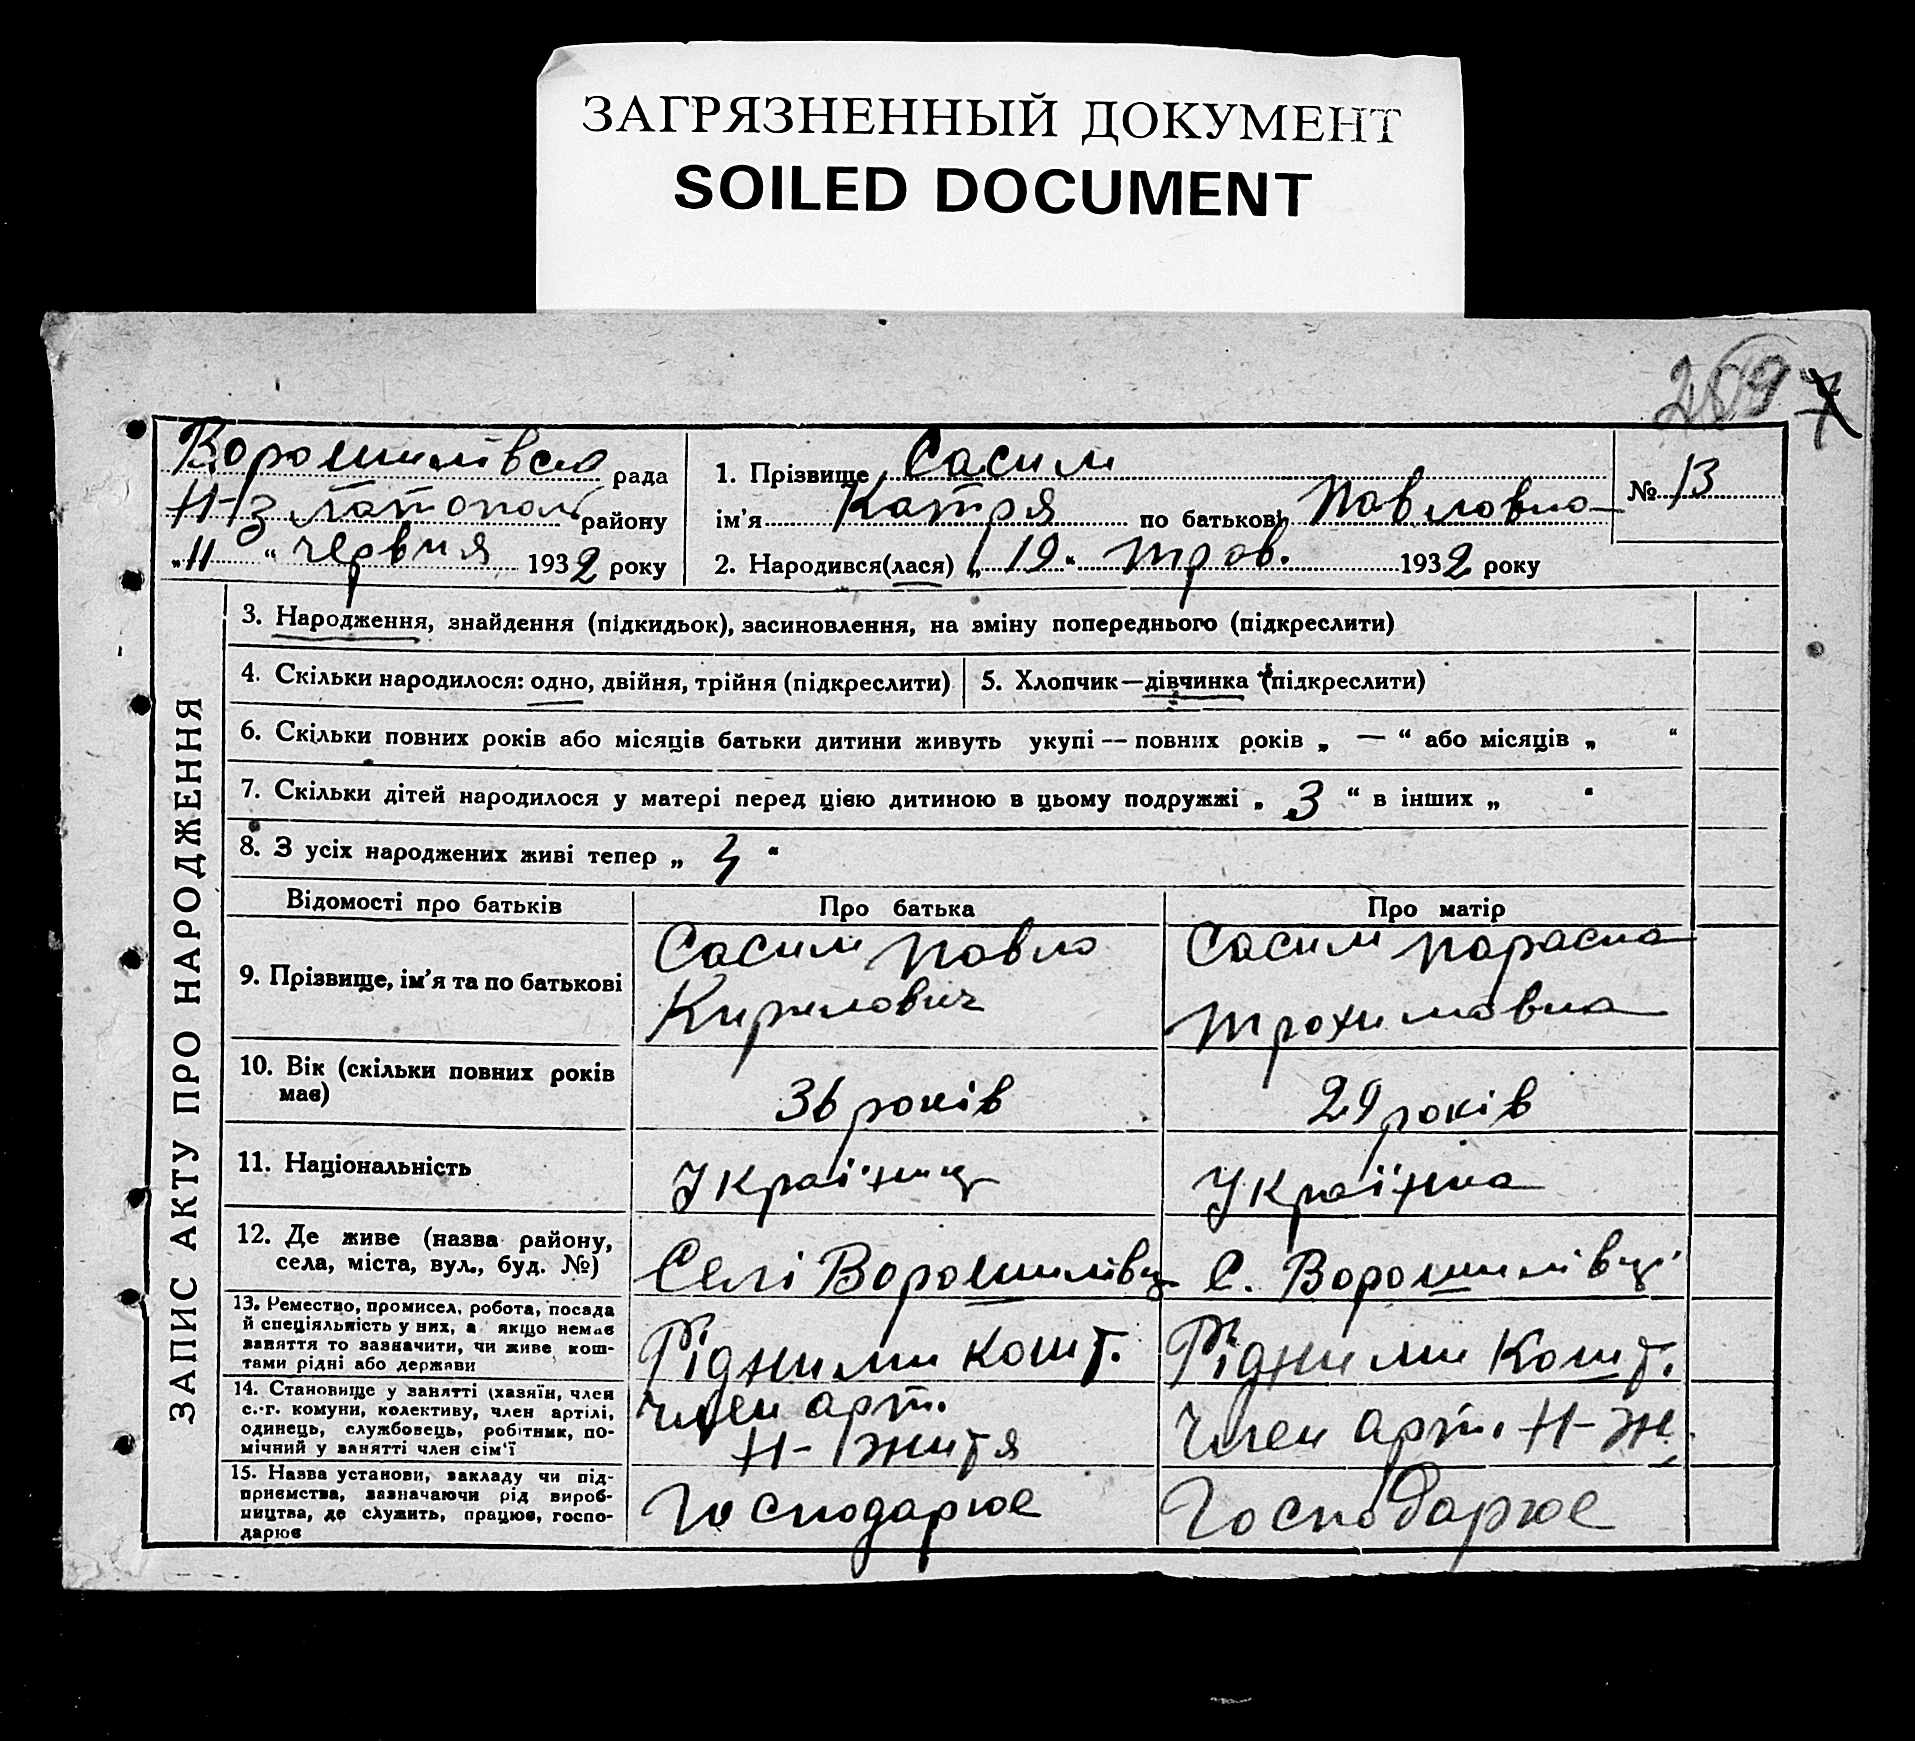 ЗАГРЯЗНЕННЫЙ ДОКУМЕНТ
SOILED DOCUMENT
289 7
Ворошилівська рада
Н-Златопол району
„11“ червня 1932 року
1. Прізвище Сасим
ім'я Катря по батькові Павловна
2. Народився(лася) „19“ трав. 1932 року
№ 13
ЗАПИС АКТУ ПРО НАРОДЖЕННЯ
3. Народження, знайдення (підкидьок), засиновлення, на зміну попереднього (підкреслити)
4. Скільки народилося: одно, двійня, трійня (підкреслити)
5. Хлопчик—дівчинка (підкреслити)
6. Скільки повних років або місяців батьки дитини живуть укупі — повних років „ — “ або місяців „ “
7. Скільки дітей народилося у матері перед цією дитиною в цьому подружжі „ 3 “ в інших „ “
8. З усіх народжених живі тепер „ “
Відомості про батьків
Про батька
Про матір
9. Прізвище, ім'я та по батькові
Сасим Павло
Кирилович
Сасим Параска
Трохимовна
10. Вік (скільки повних років
має)
36 років
29 років
11. Національність
Українц
Українка
12. Де живе (назва району,
села, міста, вул., буд. №)
Селі Ворошилівц
С. Ворошилівці
13. Ремество, промисел, робота, посада
й спеціяльність у них, а якщо немає
заняття то зазначити, чи живе кош-
тами рідні або держави
Рідними кошт.
Рідними Кошт.
14. Становище у занятті (хазяїн, член
с.-г. комуни, колективу, член артілі,
одинець, службовець, робітник, по-
мічний у занятті член сім'ї
член арт.
Н-життя
Член арт. Н-Ж.
15. Назва установи, закладу чи під-
приємства, зазначаючи рід вироб-
ництва, де служить, працює, госпо-
дарює
Господарює
Господарює